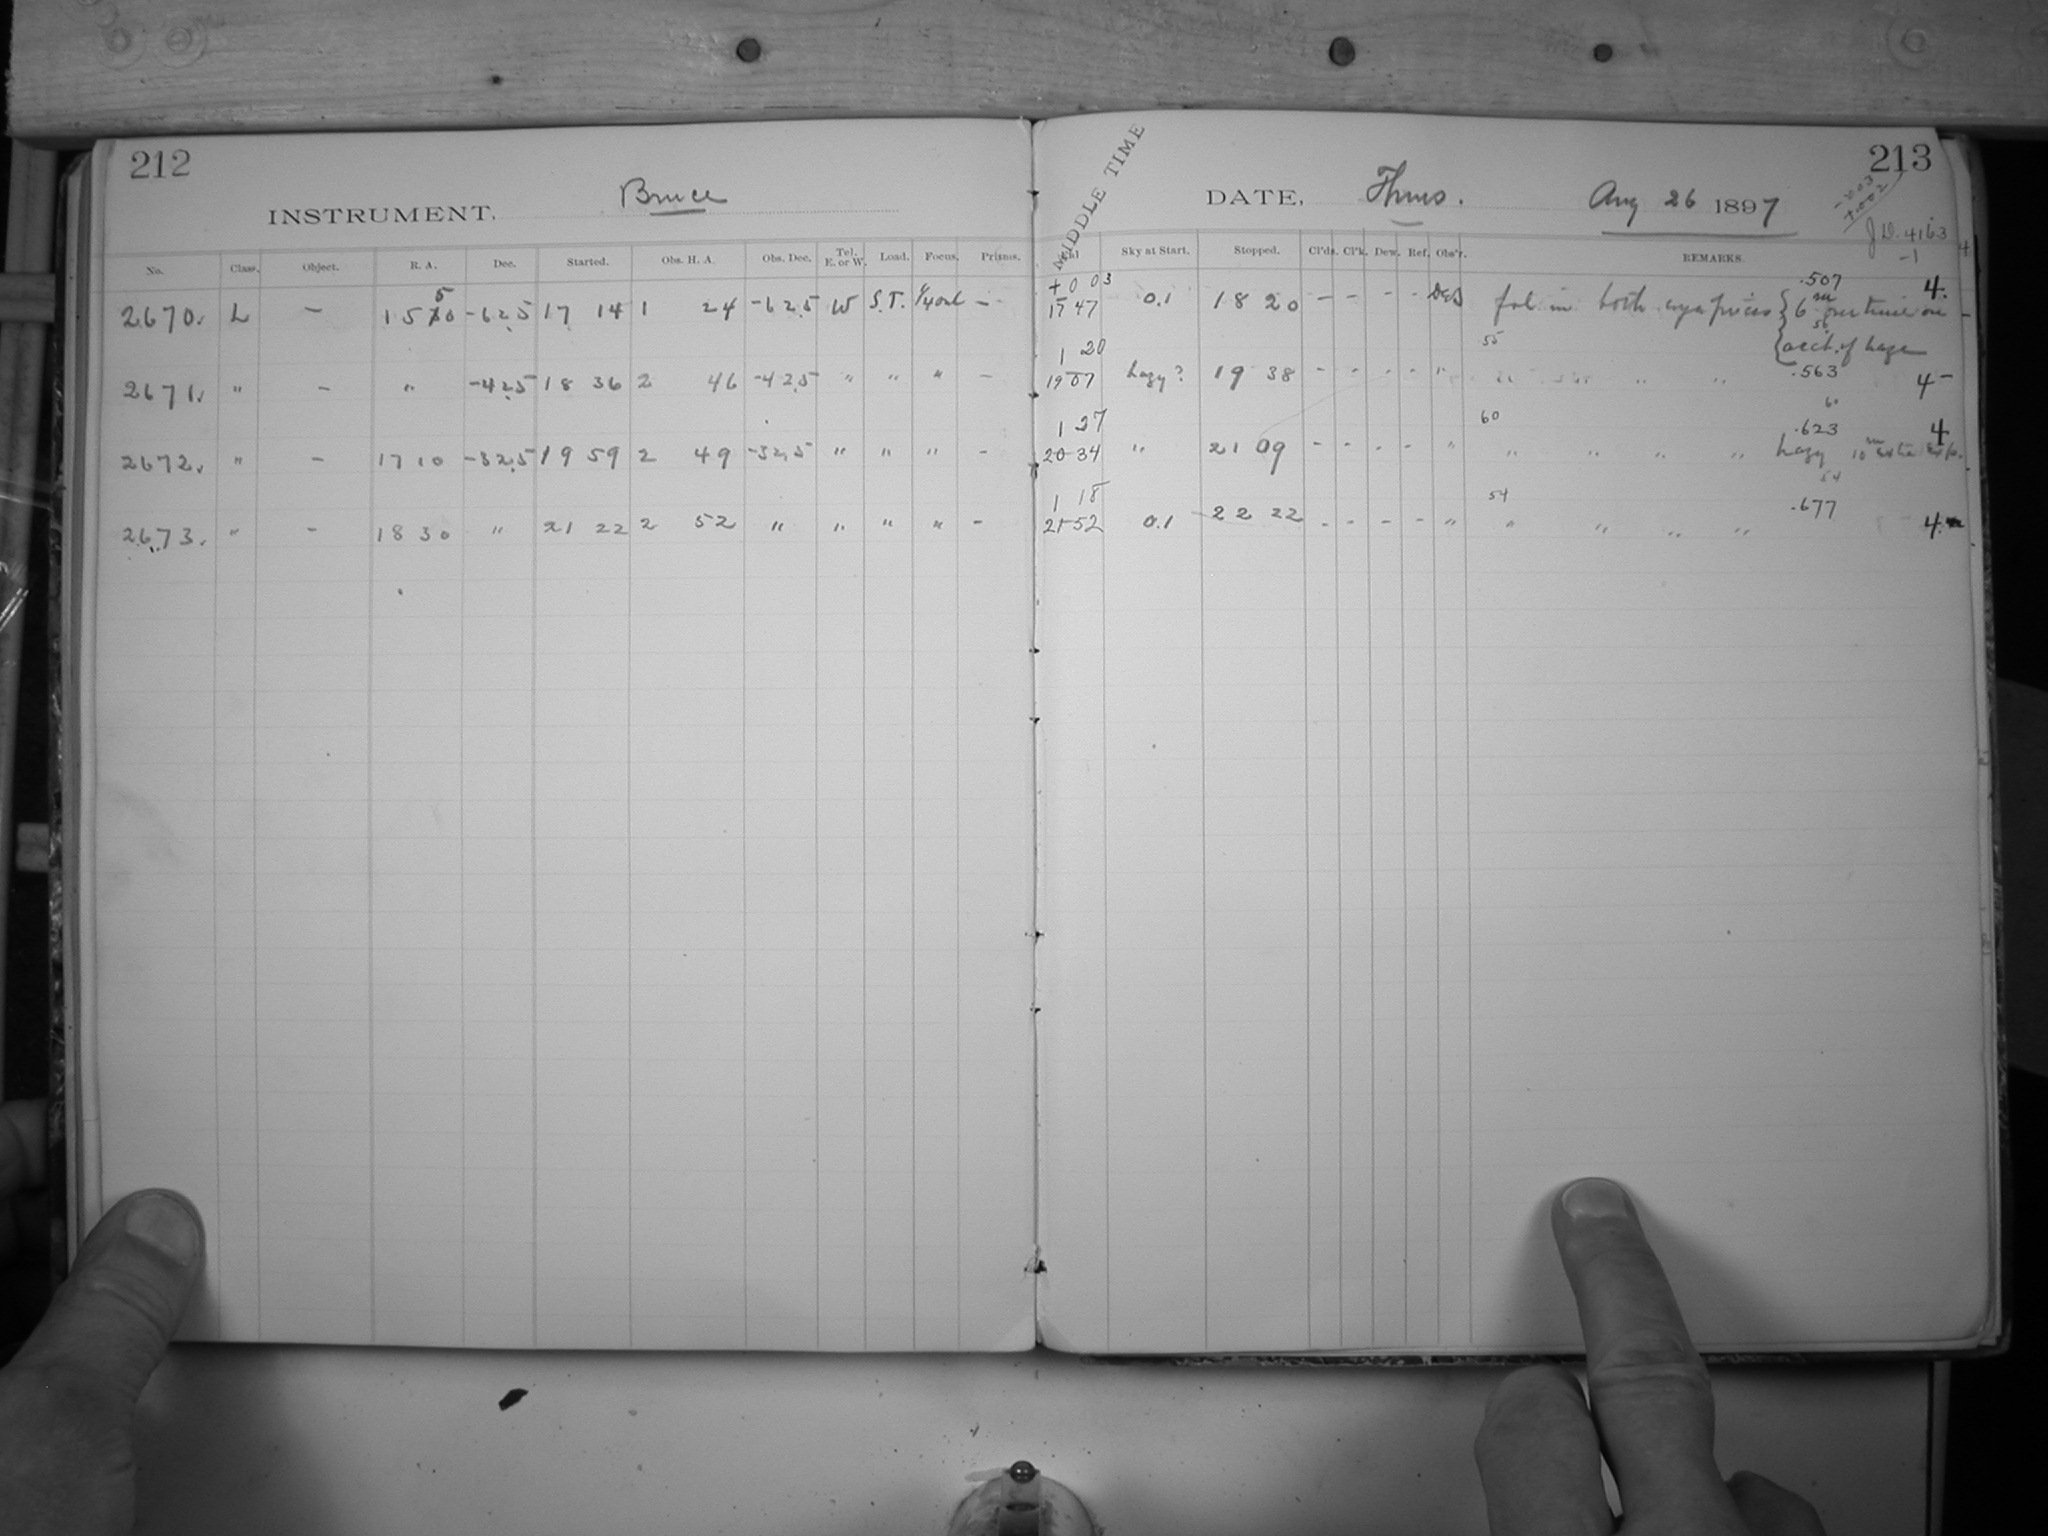 212
INSTRUMENT. Bruce
No. Class. Object. R. A. Dec. Started. Obs. H. A. Obs. Dec. Tel. E. or W. Load. Focus. Prisms.
2670. L — 15 50 -62.5 17 14 1 24 -62.5 W S.T. —
2671. " — " -42.5 18 36 2 46 -42.5 " " " —
2672. " — 17 10 -32.5 19 59 2 49 -32.5 " " " —
2673. " — 18 30 " 21 22 2 52 " " " " —
213
MIDDLE TIME
DATE, Thurs. Aug 26 1897
J.D. 4163
-1
Sky at Start. Stopped. Cl'ds. Cl'k. Dew. Ref. Obs'r. REMARKS.
+0 03 .507 4.
17 47 0.1 18 20 — — - - fol. in both eyepieces { 6 m over time on
56
1 20 55 { acct. of haze
19 07 hazy? 19 38 - - - - " " " .563 4 -
60
1 27 60 .623 4
20 34 " 21 09 - - - - " " " " " hazy 10 m extra exp.
54
1 18 54 .677
21 52 0.1 22 22 - - - - " " " " " 4.